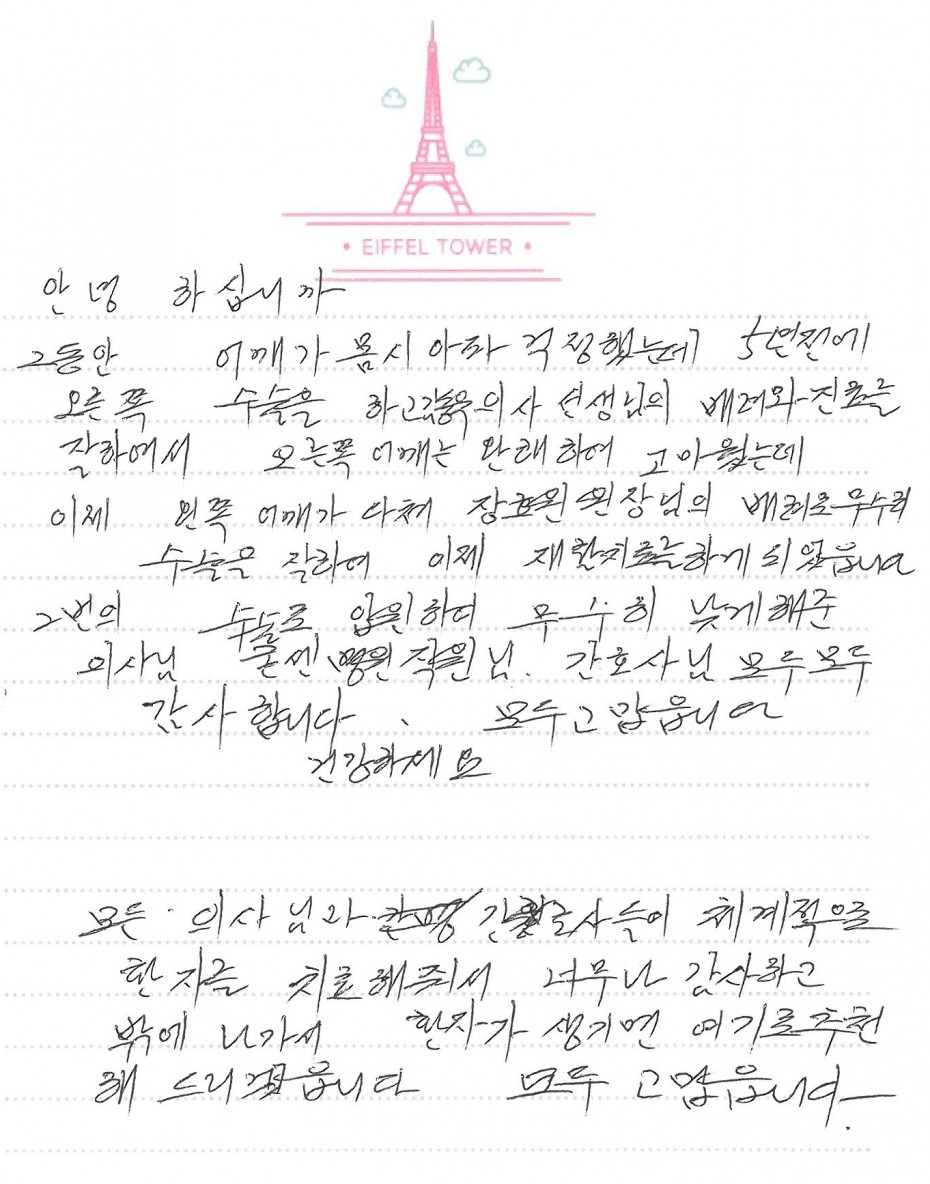 EIFFEL TOWER
안녕 하십니까
그동안 어깨가 몹시 아파 걱정했는데 5년전에
오른쪽 수술을 하고 의사 선생님의 배려와 진료를
잘하여서 오른쪽 어깨는 완쾌하여 고마웠는데
이제 왼쪽 어깨가 다쳐 원장님의 배려로 무수히
수술을 잘하여 이제 재활치료를하게 되었읍니다
2번의 수술로 입원하여 무수히 낫게해준
의사님 병원직원님. 간호사님 모두모두
감사합니다. 모두고맙읍니다
건강하세요
모든 의사님과 간호사들이 체계적으로
환자를 치료해주워서 너무나 감사하고
밖에 나가서 환자가 생기면 여기로추천
해 드리겠읍니다 모두 고맙읍니다.